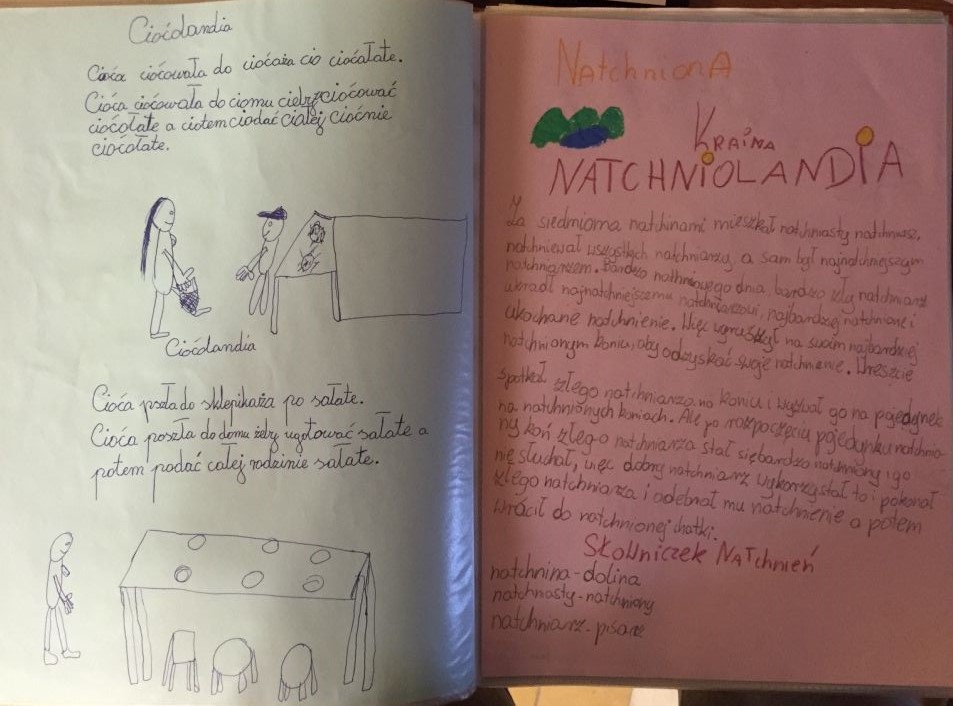 Ciośolandia
Ciośa ciośowała do ciośaża cio ciośałate.
Ciośa ciośowała do ciomu cieby ciośować
ciośołate a ciotem ciodać ciałej ciośnie
ciośołate.
Ciośolandia
Ciośa poszła do sklepikaża po sałate.
Ciośa poszła do domu żeby ugotować sałate a
potem podać całej rodzinie sałate.
NatchnionA
KRAiNA
NATCHNiOLANDiA
Za siedmioma natchninami mieszkał natchniasty natchniusz,
natchniewał wszystkich natchniarzy, a sam był najnatchniejszym
natchniarzem. Bardzo natchniowego dnia, bardzo zły natchniarz
ukradł najnatchniejszemu natchniarzowi, najbardziej natchnione i
ukochane natchnienie. Więc wyruszył na swoim najbardziej
natchnionym koniu, aby odzyskać swoje natchnienie. Wreszcie
spotkał złego natchniarza na koniu i wyzwał go na pojedynek
na natchnionych koniach. Ale po rozpoczęciu pojedynku natchnio-
ny koń złego natchniarza stał się bardzo natchniony i go
nie słuchał, więc dobry natchniarz wykorzystał to i pokonał
złego natchniarza i odebrał mu natchnienie a potem
wrócił do natchnionej chatki.
SłowNiczek NAtchNień
natchnina-dolina
natchniasty-natchniony
natchniarz-pisarz